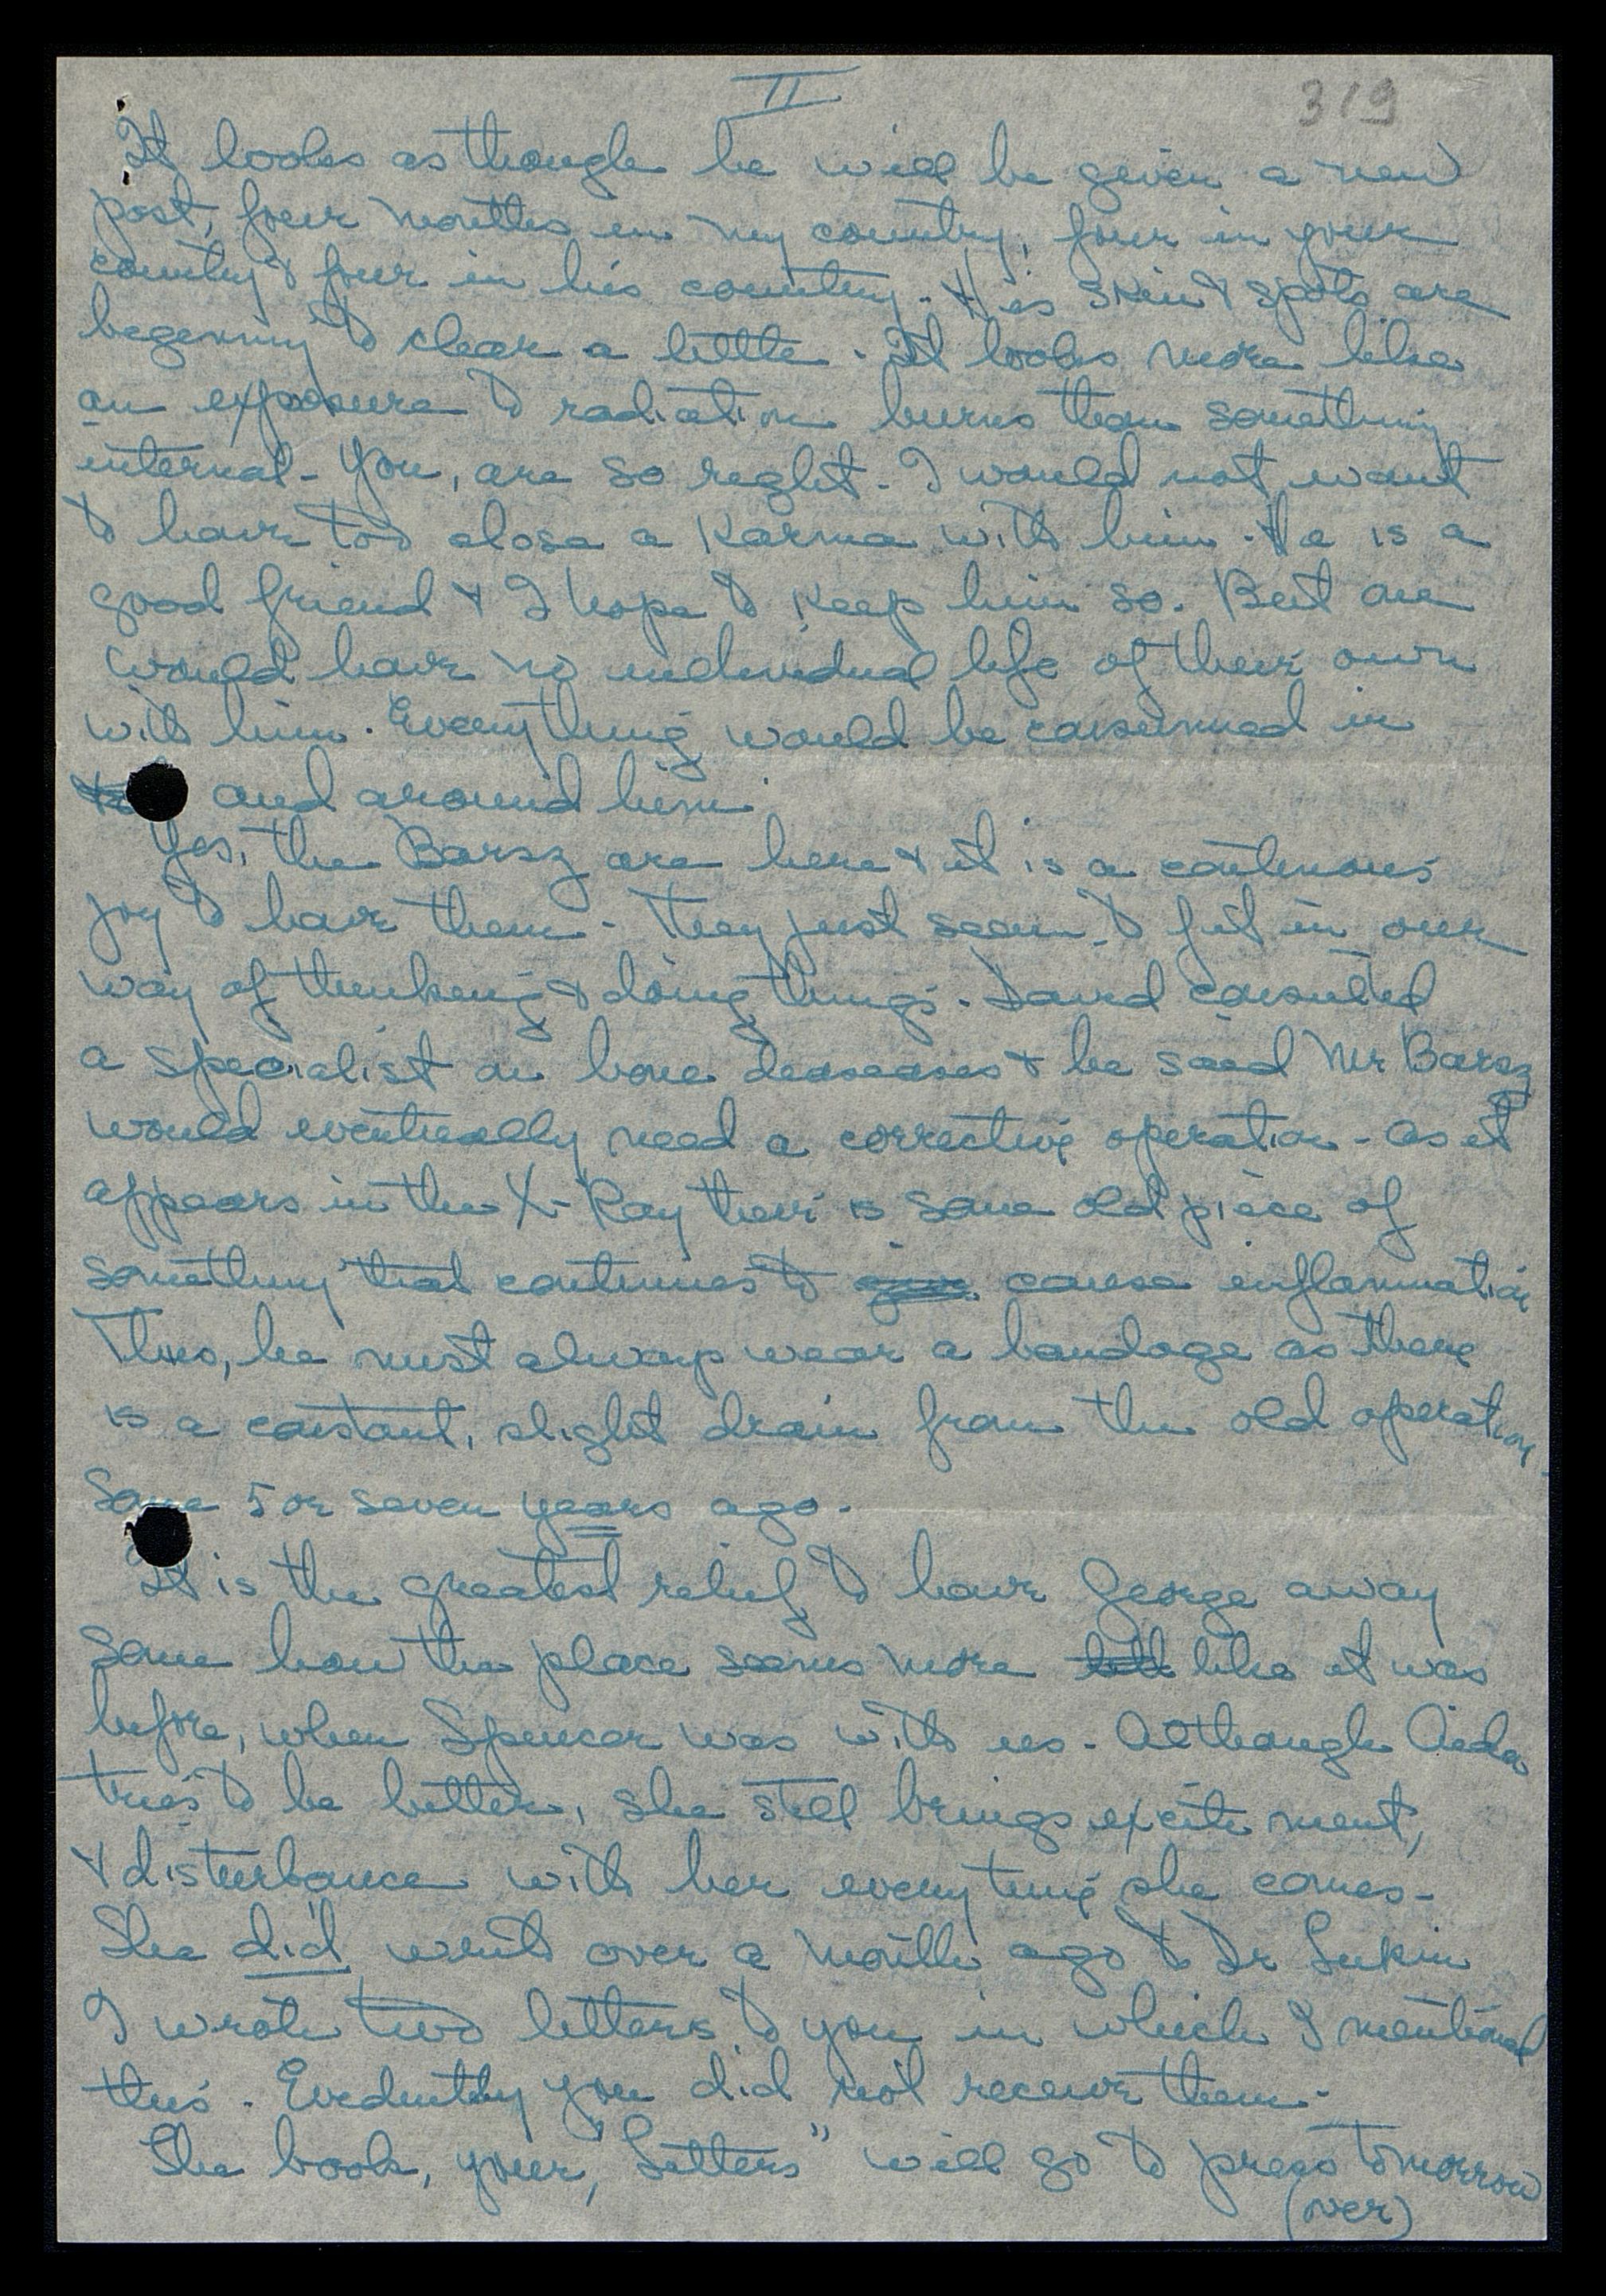 II
319
It looks as though he will be given a new
post, four months in my country, four in your
country & four in his country. His skin & spots are
begenning to clear a little. It looks more like
an exposure to radiation burns than something
internal - You, are so right. I would not want
to have too close a Karma with him. He is a
good friend & I hope to keep him so. But one
would have no individual life of their own
with him. Everything would be consummed in
and around him.
Yes, the Barsz are here & it is a continous
joy to have them - They just seem to fit in our
way of thinking & doing things. David consulted
a specialist on bone deaseases & he said Mr Barsz
would eventually need a corrective operation - as it
appears in the X-Ray their is some old piece of
something that continues to cause inflammation
Thus, he must always wear a bandage as there
is a constant, slight drain from the old operation
Some 5 or seven years ago.
It is the greatest relief to have George away
Some how the place seems more like it was
before, when Spencer was with us - Although Aida
tries to be better, she still brings excitement,
& disturbance with her every time she comes -
She did write over a month ago to Dr Lukin
I wrote two letters to you in which I mentioned
this. Evedently you did not receive them.
The book, your, "Letters" will go to press tomorrow
(over)